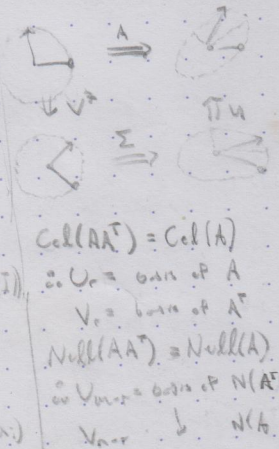 A
V^T
Σ
U
Col(AA^T) = Col(A)
∴ U_r = basis of A
V_r = basis of A^T
Null(AA^T) = Null(A)
∴ U_{m-r} = basis of N(A^T
V_{n-r} ↓ N(A